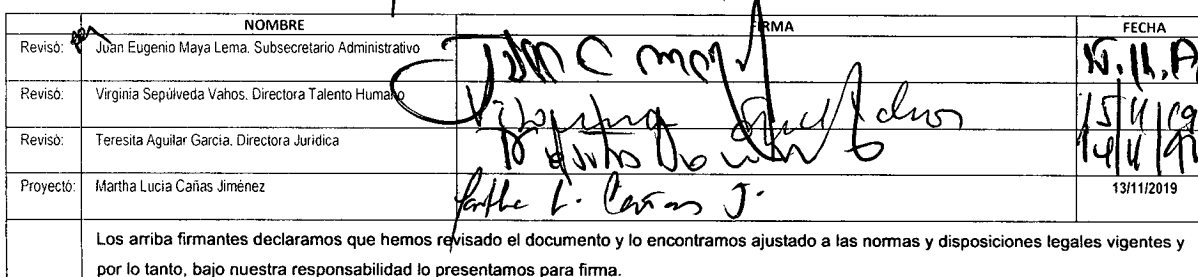 NOMBRE FIRMA FECHA
Revisó: Juan Eugenio Maya Lema. Subsecretario Administrativo
Revisó: Virginia Sepúlveda Vahos. Directora Talento Humano 15/11/19
Revisó: Teresita Aguilar García. Directora Jurídica
Proyectó: Martha Lucia Cañas Jiménez Martha L. Cañas J. 13/11/2019
Los arriba firmantes declaramos que hemos revisado el documento y lo encontramos ajustado a las normas y disposiciones legales vigentes y
por lo tanto, bajo nuestra responsabilidad lo presentamos para firma.